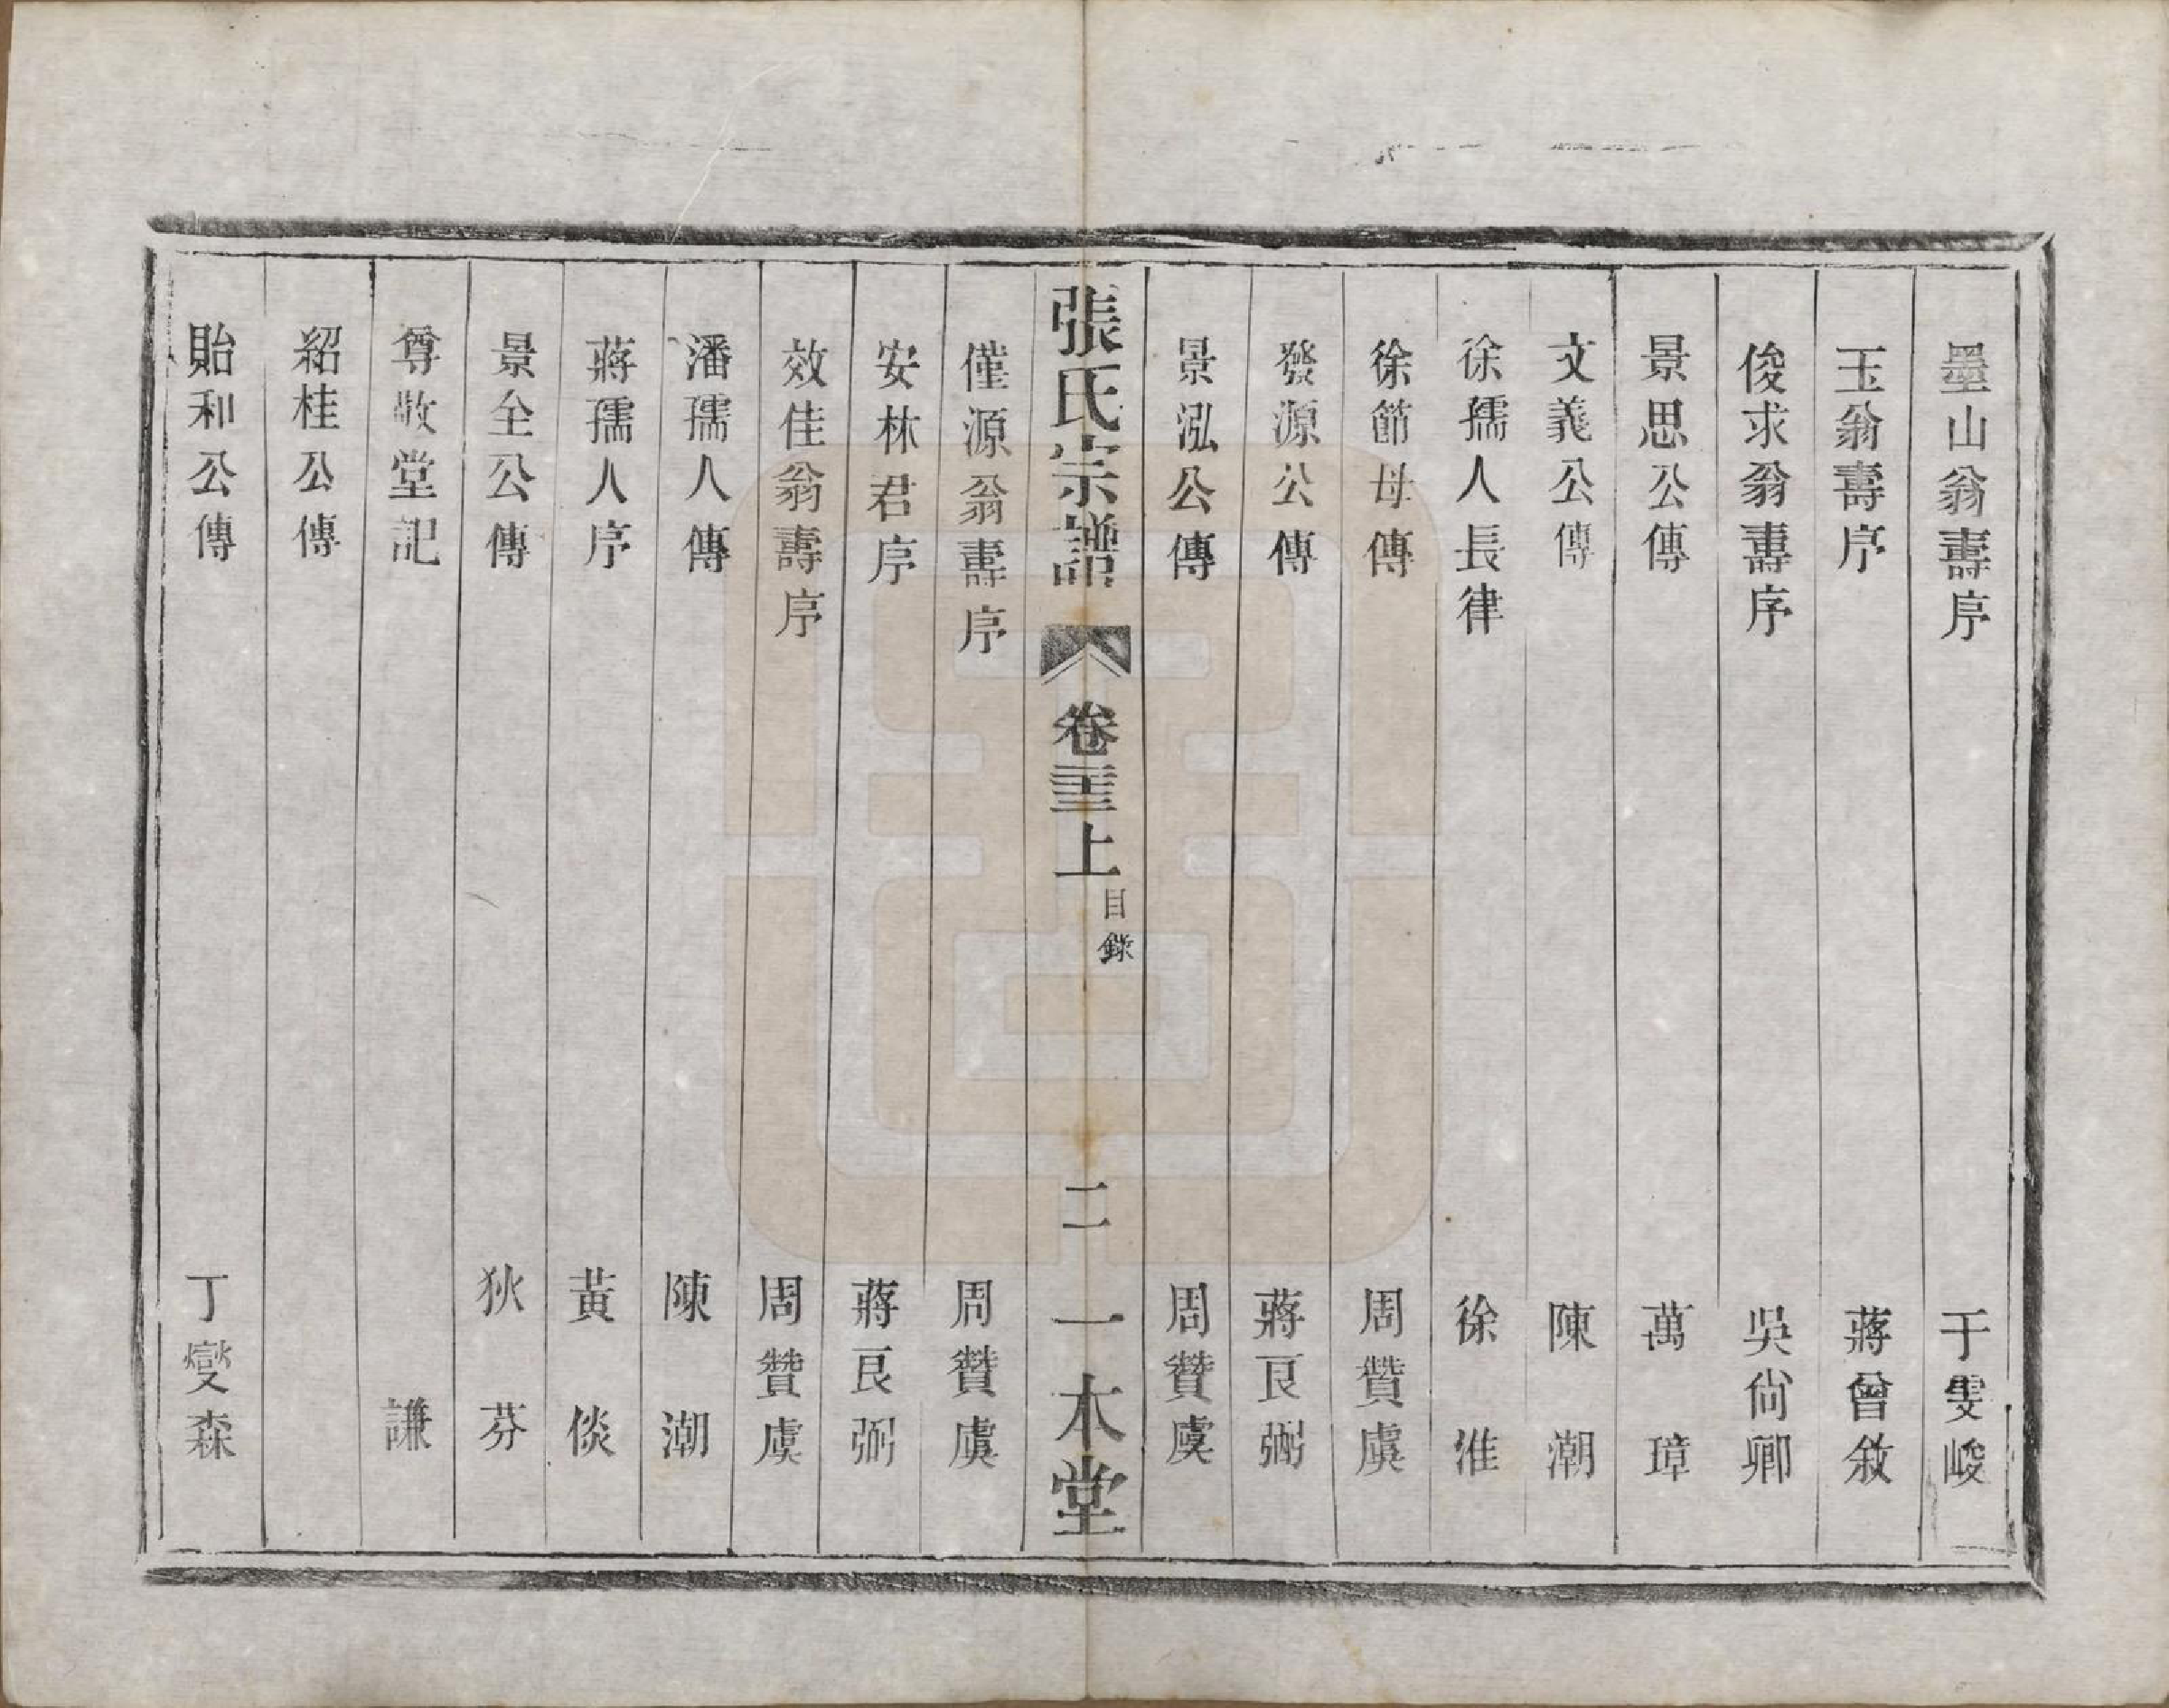 墨山翁壽序 于雯峻
玉翁壽序 蔣曾敘
俊求翁壽序 吳尙卿
景思公傳 萬璋
文義公傳 陳潮
徐孺人長律 徐淮
徐節母傳 周贊虞
發源公傳 蔣良弼
景泓公傳 周贊虞
張氏宗譜 卷三上 目錄 二 一本堂
僅源翁壽序 周贊虞
安林君序 蔣良弼
效佳翁壽序 周贊虞
潘孺人傳 陳潮
蔣孺人序 黃倓
景全公傳 狄芬
尊敬堂記 謙
紹桂公傳
貽和公傳 丁燮森